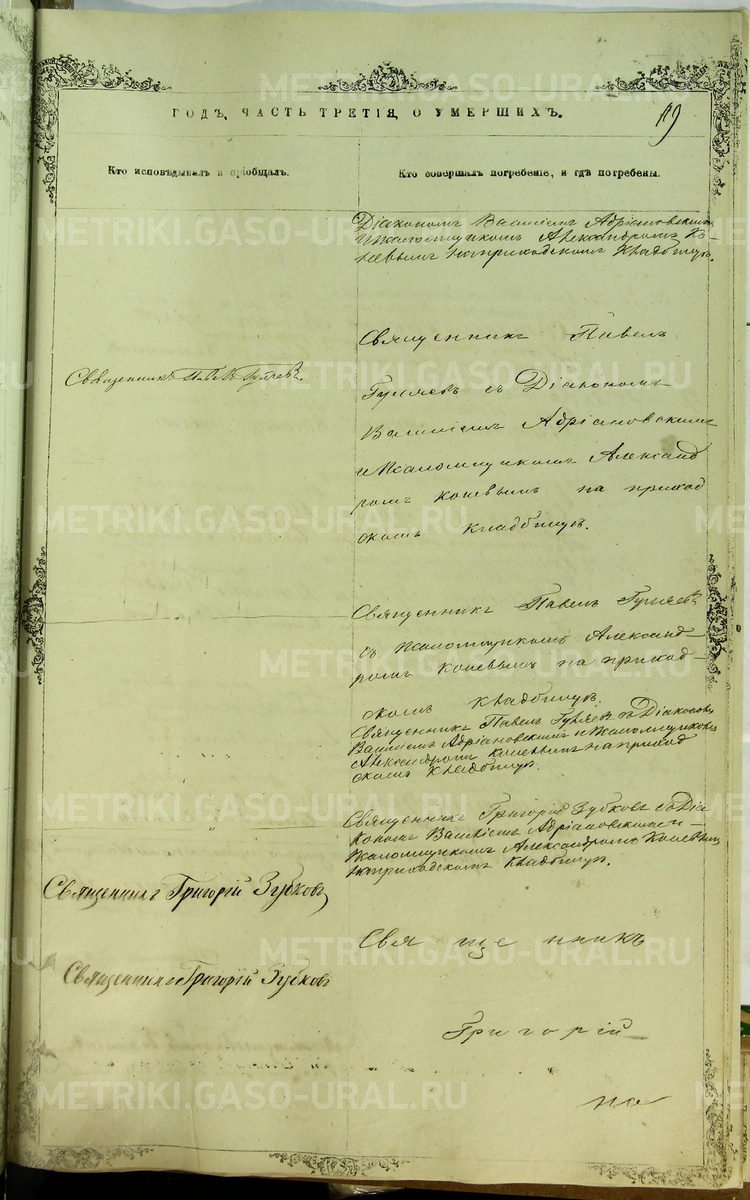 119
ГОДЪ, ЧАСТЬ ТРЕТІЯ, О УМЕРШИХЪ.
Кто исповѣдывалъ и пріобщалъ.
Кто совершалъ погребеніе, и гдѣ погребены.
Діакономъ Василіемъ Адріановскимъ
и Псаломщикомъ Александромъ Ко-
шевымъ на приходскомъ Кладбищѣ.
Священникъ Павелъ
Священникъ Павелъ Гуляевъ.
Гуляевъ съ Діакономъ
Василіемъ Адріановскимъ
и Псаломщикомъ Александ
ромъ Кошевымъ на приход
скомъ Кладбищѣ.
Священникъ Павелъ Гуляевъ
съ Псаломщикомъ Александ-
ромъ Кошевымъ на приход-
скомъ кладбищѣ.
Священникъ Павелъ Гуляевъ съ Діакономъ
Василіемъ Адріановскимъ и Псаломщикомъ
Александромъ Кошевымъ на приход
скомъ Кладбищѣ.
Священникъ Григорій Зубковъ съ Діа
кономъ Василіемъ Адріановскимъ и
Псаломщикомъ Александромъ Кошевымъ
на приходскомъ Кладбищѣ.
Священникъ Григорій Зубковъ
Свя ще нникъ
Священникъ Григорій Зубковъ
Григорій
на
METRIKI.GASO-URAL.RU